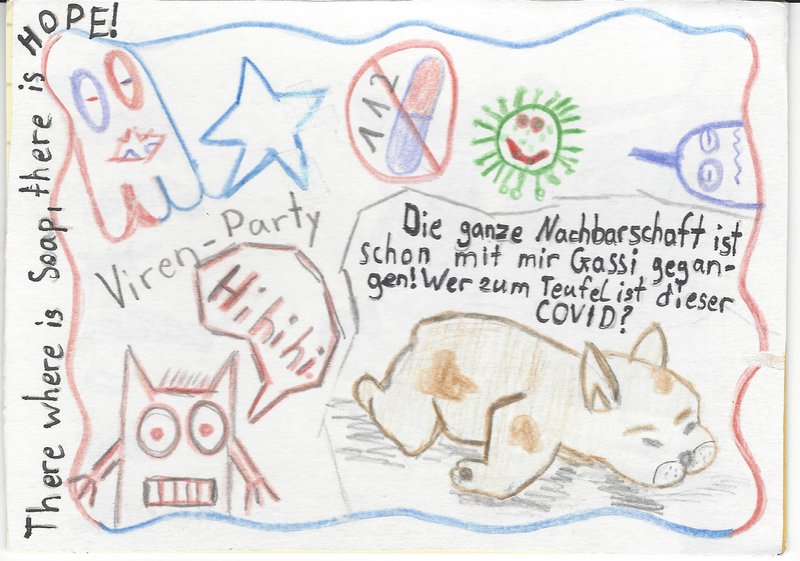 There where is Soap, there is HOPE!
112
Viren-Party
Hihihi
Die ganze Nachbarschaft ist
schon mit mir Gassi gegan-
gen! Wer zum Teufel ist dieser
COVID?